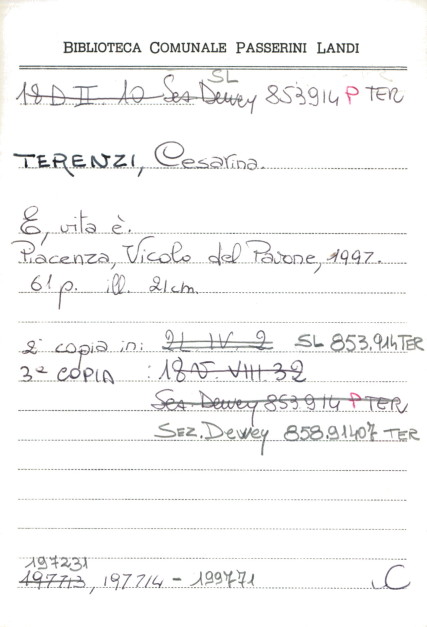 BIBLIOTECA COMUNALE PASSERINI LANDI
SL
18 D II. 10 Sez Dewey 853914 P TER
TERENZI, Cesarina.
E, vita è.
Piacenza, Vicolo del Pavone, 1997.
61 p. ill. 21 cm.
2ª copia in: 2L IV. 2 SL 853.914 TER
3ª COPIA : 18 V. VIII. 32
Sez. Dewey 853914 P TER
SEZ. Dewey 858.91407 TER
197231
197713, 197714 - 199771 C